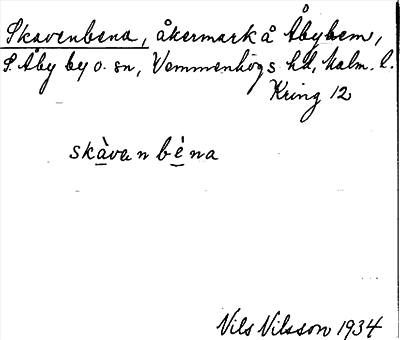 Skavenbena, åkermark å Åbyhem,
S. Åby by o. sn, Vemmenhögs hd, Malm. l.
Kring 12
skàvanbèna
Nils Nilsson 1934